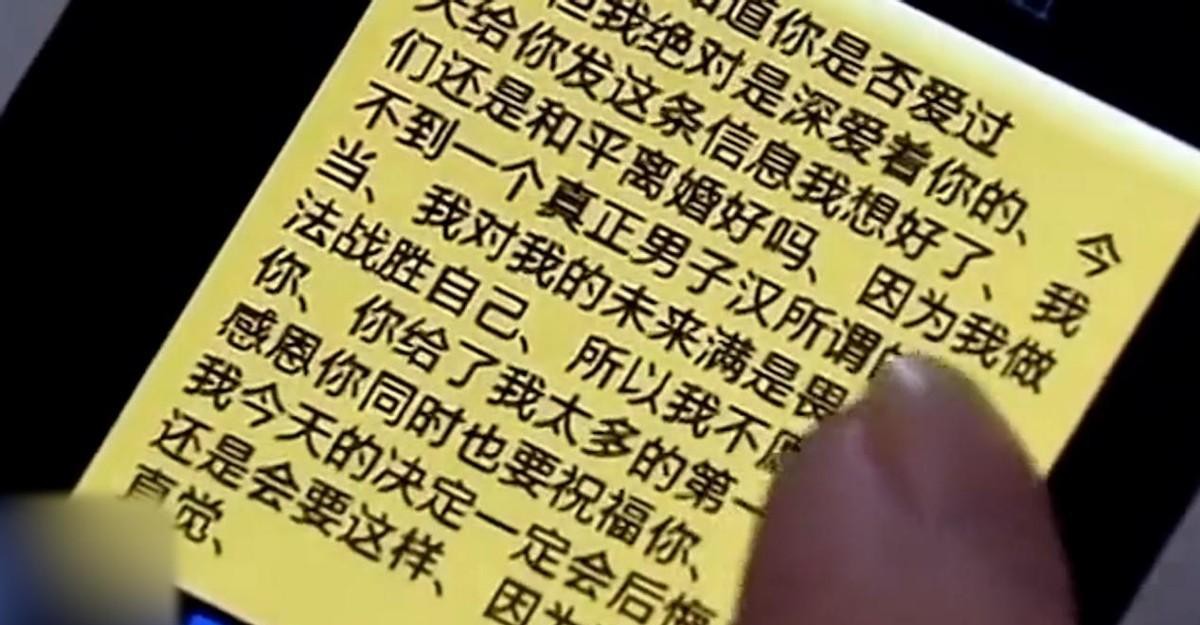 知道你是否爱过
但我绝对是深爱着你的、今
天给你发这条信息我想好了、我
们还是和平离婚好吗、因为我做
不到一个真正男子汉所谓的
当、我对我的未来满是畏
法战胜自己、所以我不愿
你、你给了我太多的第一
感恩你同时也要祝福你、
我今天的决定一定会后悔
还是会要这样、因为
直觉、